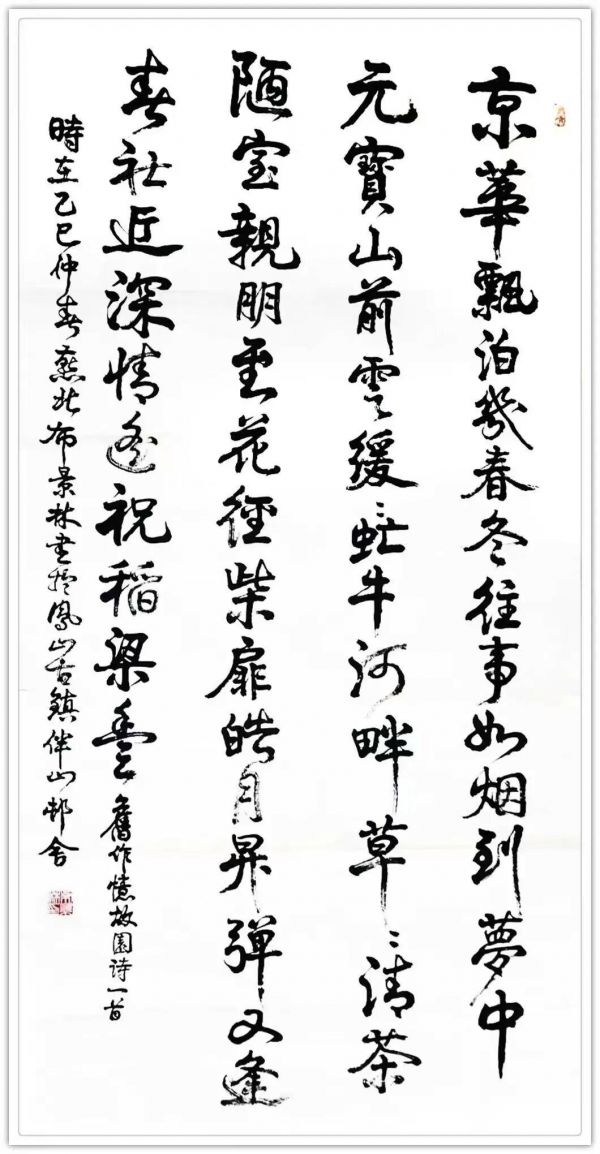 京華飄泊幾春冬往事如烟到夢中
元寶山前雲緩〻虻牛河畔草〻清茶
陋室親朋至花徑柴扉皓月昇彈又逢
春社近深情遙祝稻梁豐舊作憶故園詩一首
時在乙巳仲春燕北布景林書於鳳山古鎮伴山邨舍